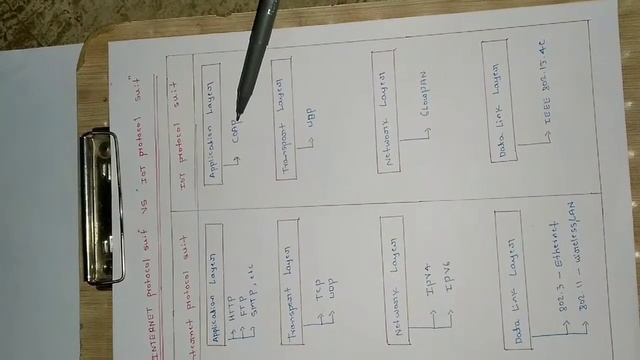 INTERNET protocol suit VS "IOT protocol suit"
ternet protocol suit
IOT protocol suit
Application Layer
HTTP
FTP
SMTP, etc
Application Layer
COAP
Transport Layer
TCP
UDP
Transport Layer
UDP
Network Layer
IPV4
IPV6
Network Layer
6LOWPAN
Data Link Layer
802.3 - Ethernet
802.11 - Wireless LAN
Data Link Layer
IEEE 802.15.4C